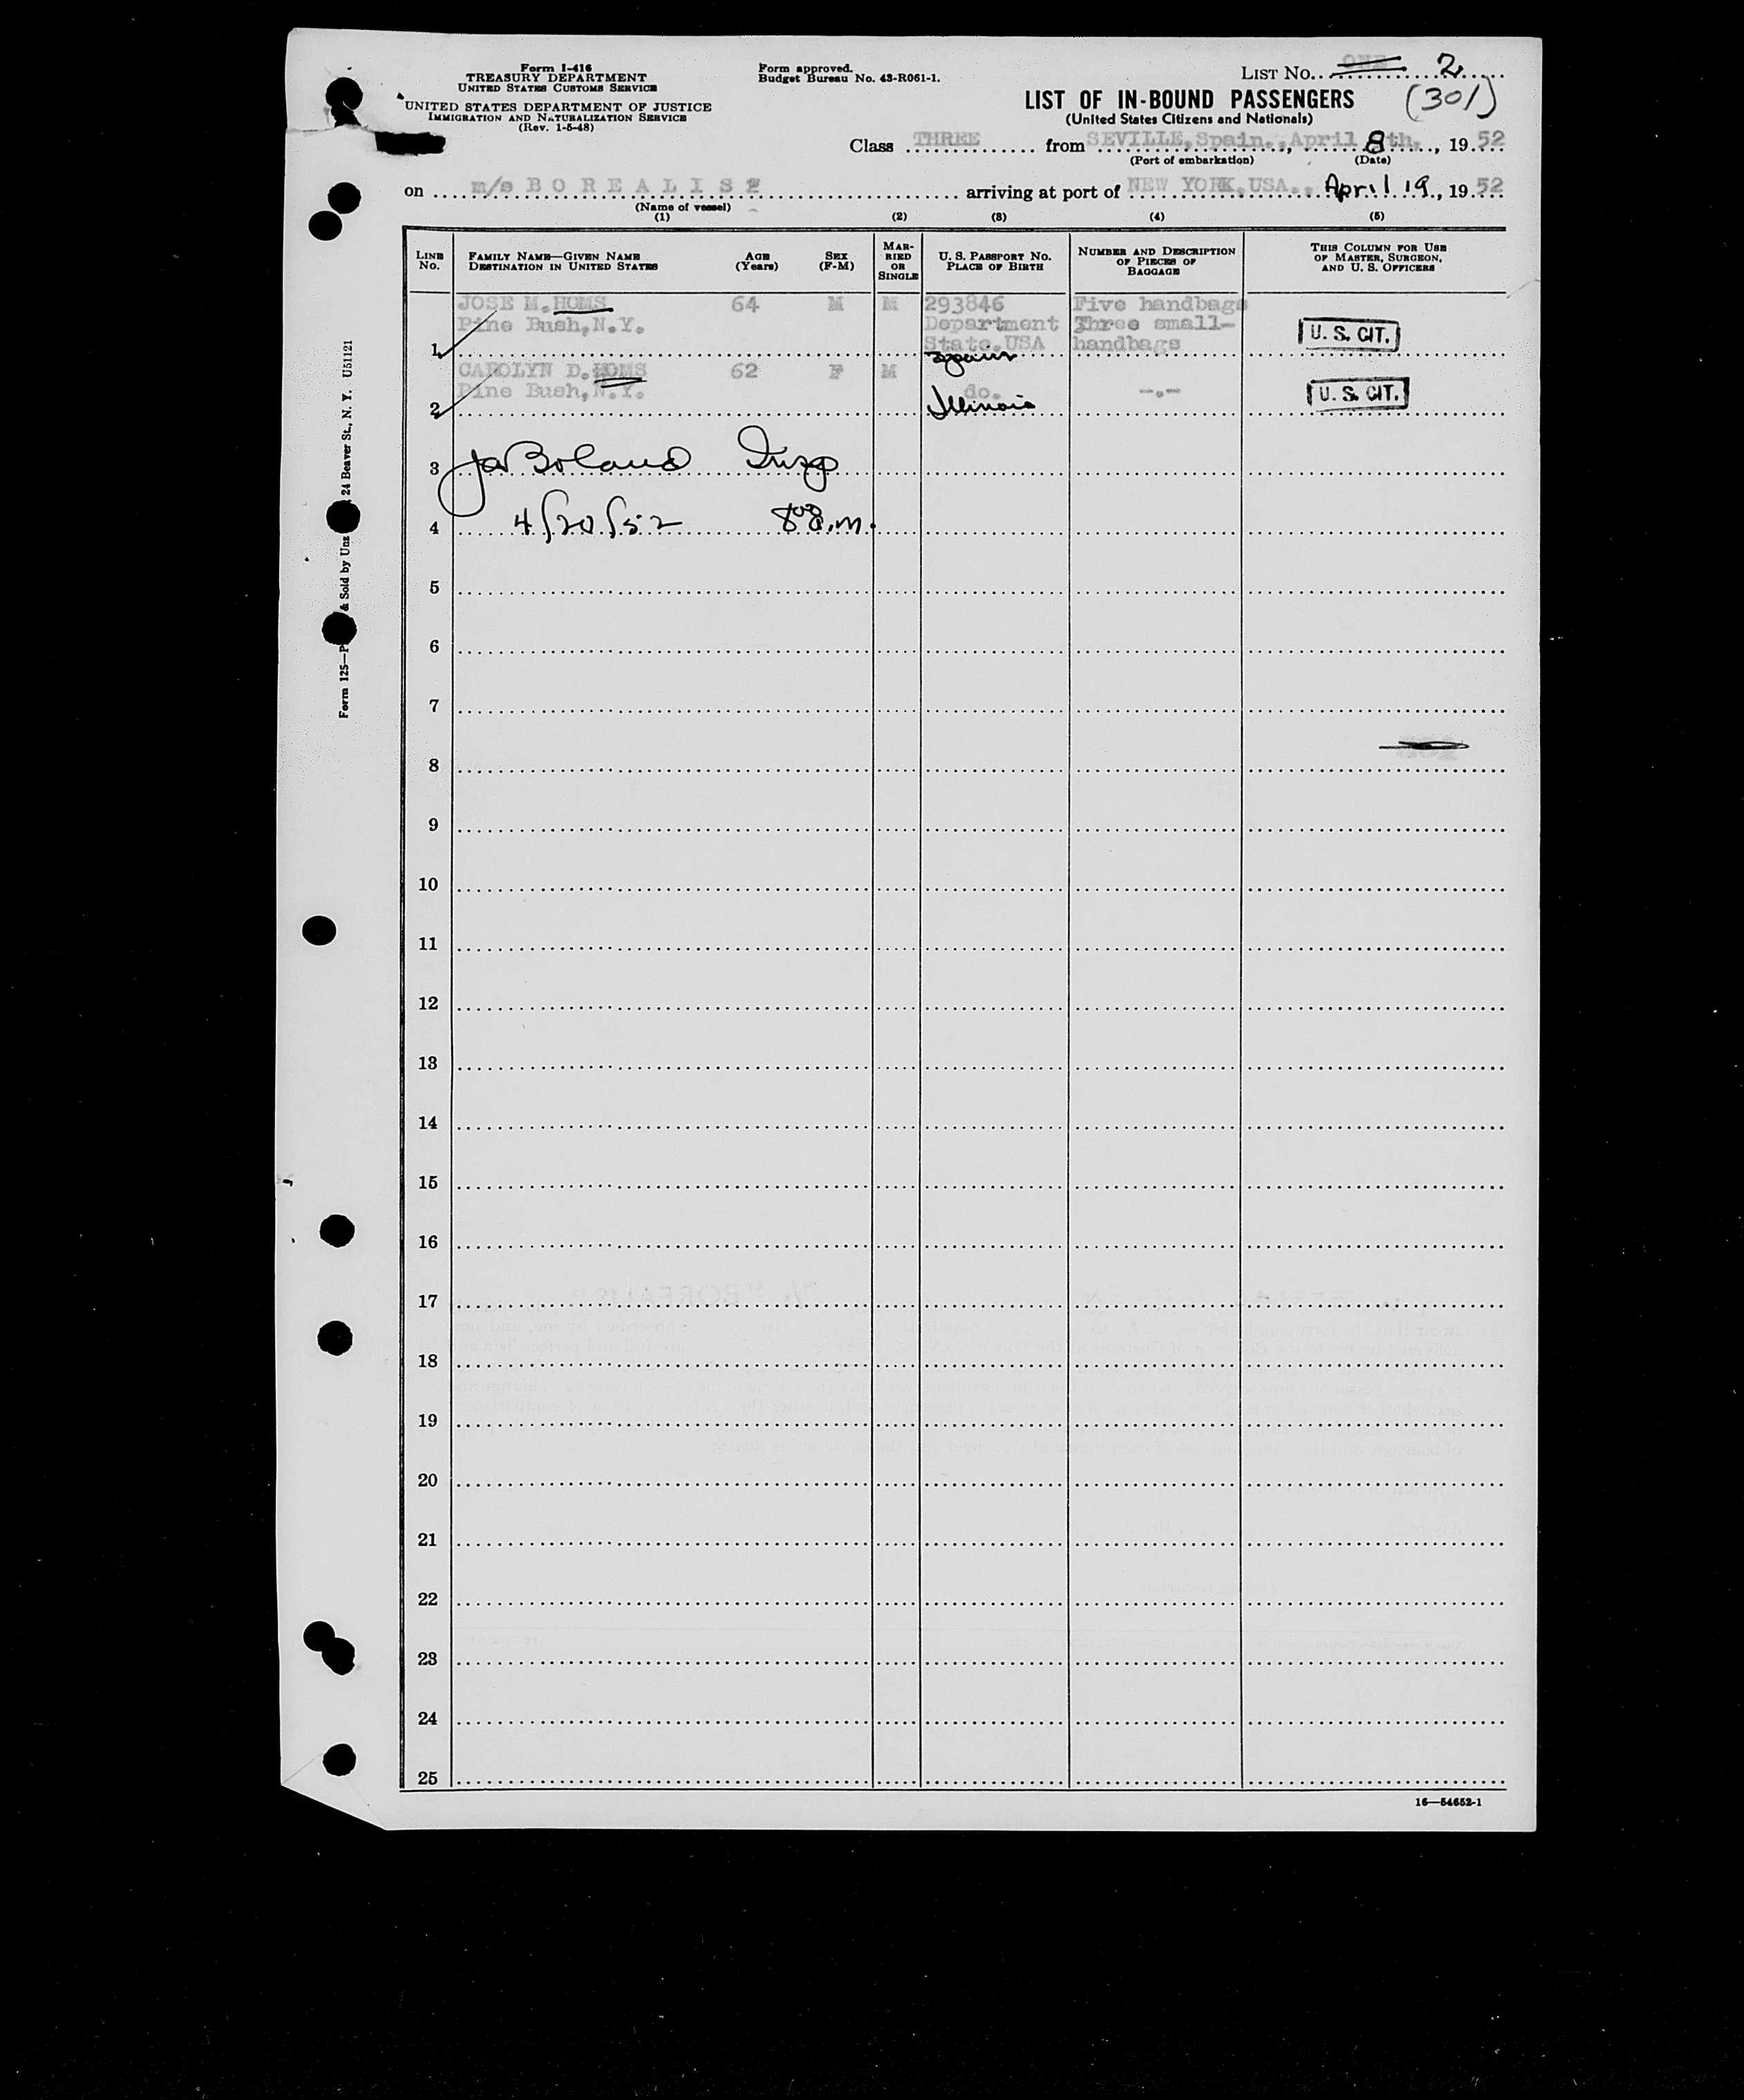 Form I-416
TREASURY DEPARTMENT
UNITED STATES CUSTOMS SERVICE
UNITED STATES DEPARTMENT OF JUSTICE
IMMIGRATION AND NATURALIZATION SERVICE
(Rev. 1-5-48)
Form approved.
Budget Bureau No. 43-R061-1.
LIST No. ONE 2
(301)
LIST OF IN-BOUND PASSENGERS
(United States Citizens and Nationals)
Class THREE from SEVILLE, Spain., April 8th., 1952
(Port of embarkation) (Date)
on m/s BOREALIS arriving at port of NEW YORK, USA., April 19, 1952
(Name of vessel)
(1) (2) (3) (4) (5)
LINE No.
FAMILY NAME—GIVEN NAME
DESTINATION IN UNITED STATES
AGE (Years)
SEX (F-M)
MARRIED OR SINGLE
U. S. PASSPORT NO.
PLACE OF BIRTH
NUMBER AND DESCRIPTION OF PIECES OF BAGGAGE
THIS COLUMN FOR USE OF MASTER, SURGEON, AND U. S. OFFICERS
JOSE M. HOMS 64 M M 293846 Five handbags
Pine Bush, N.Y. Department Three small-
1 State, USA handbags U. S. CIT.
Spain
CAROLYN D. HOMS 62 F M
Pine Bush, N.Y. do. -.- U. S. CIT.
2 Illinois
3 Boland Insp
4 4/20/52
5
6
7
8
9
10
11
12
13
14
15
16
17
18
19
20
21
22
23
24
25
16—54652-1
Form 125—P & Sold by Unz 24 Beaver St., N. Y. U51121